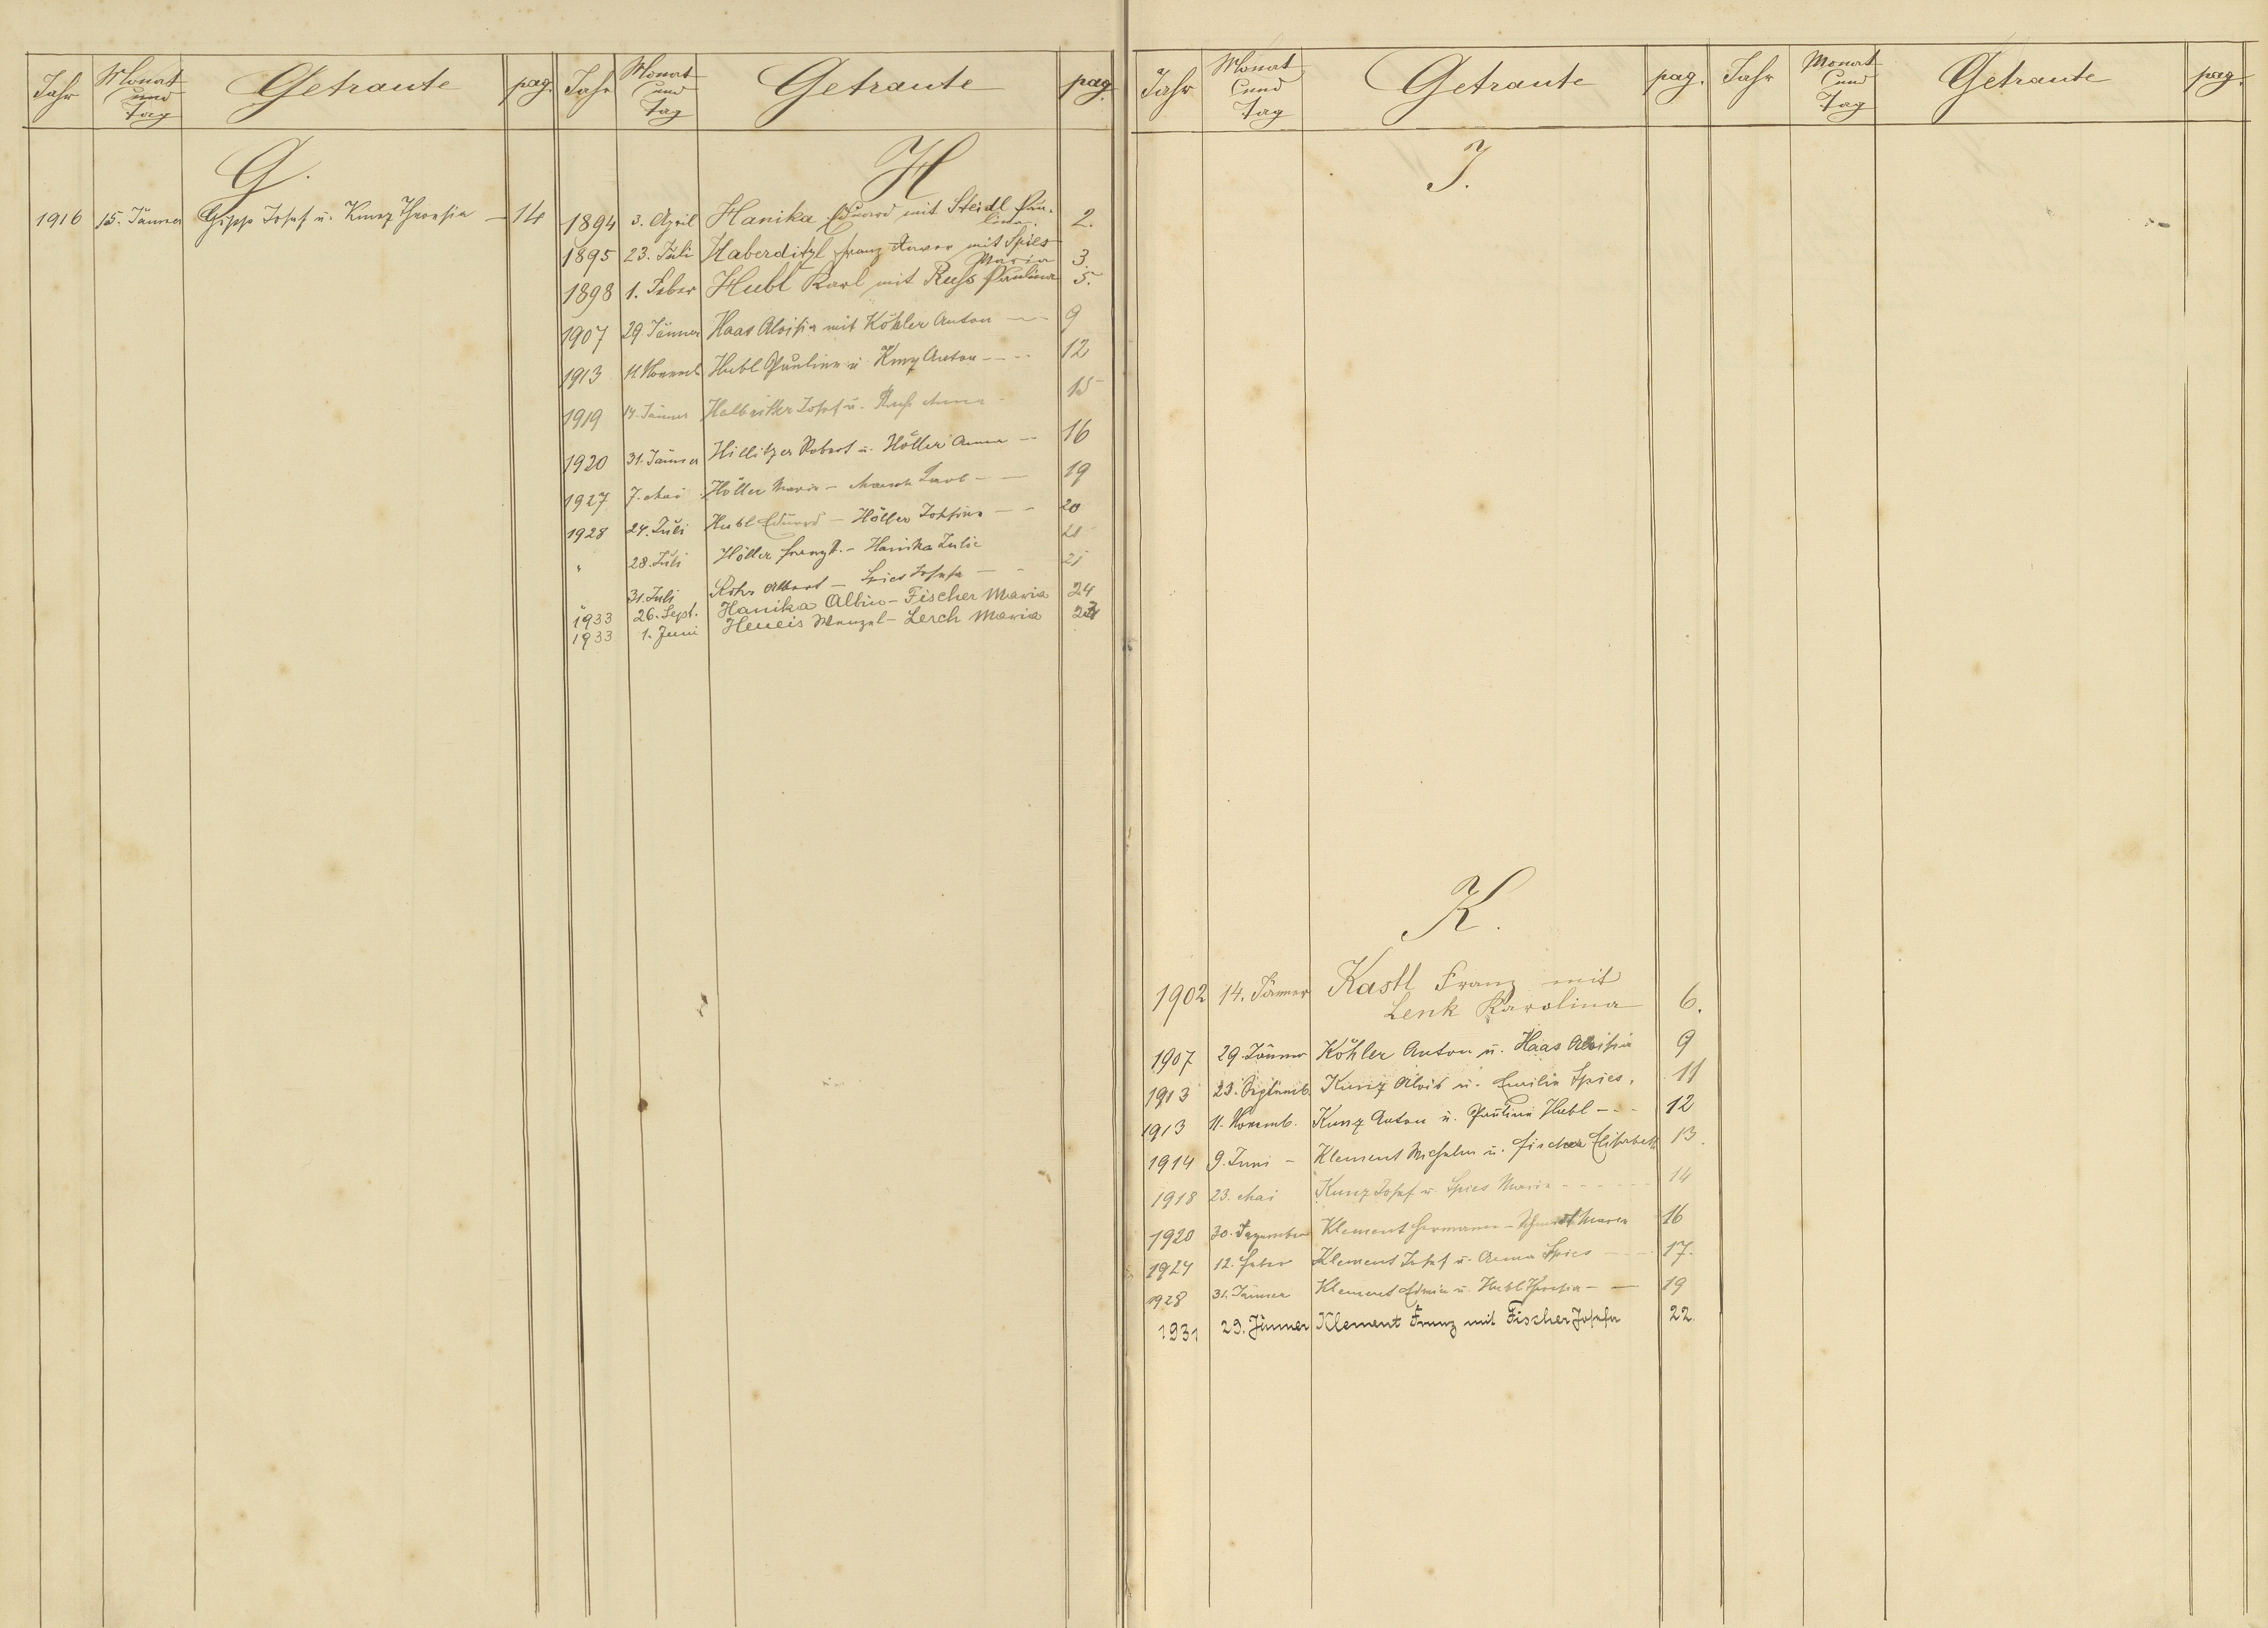 Jahr Monat und Tag Getraute pag. Jahr Monat und Tag Getraute pag.
G.
1916 15. Jänner Josef u. Kunz Theresia — 14
H
1894 3. April Hanika Eduard mit Steidl Pau-
lina 2.
1895 23. Juli Haberditzl Franz Xaver mit Spies
Maria 3.
1898 1. Feber Hubl Karl mit Russ Paulina 5.
1907 29 Jänner Haas Aloisia mit Köhler Anton — 9
1913 11. Novemb. Hubl Pauline u Kunz Anton - - - 12
1919 14. Jänner Halbritter Josef u. Russ Anna - 15
1920 31. Jänner Hillitzer Robert u. Höller Anna — 16
1927 7. Mai Höller Marie — Karl — — 19
1928 24. Juli Hubl Eduard — Höller Josefine — — 20
" 28. Juli Höller Franz — Hanika Julie
31. Juli Rohr Albert — Spies Josefa — - 21
1933 26. Sept. Hanika Albin - Fischer Maria 24
1933 1. Juni Heneis Wenzel - Lerch Maria
Jahr Monat und Tag Getraute pag. Jahr Monat und Tag Getraute pag.
J.
K.
1902 14. Jänner Kastl Franz mit
Lenk Karolina 6.
1907 29. Jänner Köhler Anton u. Haas Aloisia 9
1913 23. Septemb. Kunz Alois u. Emilie Spies. 11
1913 11. Novemb. Kunz Anton u. Pauline Hubl - - - 12
1914 9. Juni - Klement Wilhelm u. Fischer Elisabeth 13.
1918 23. Mai Kunz Josef u. Spies Marie - - - - - - 14
1920 30. Dezember Klement Hermann - Marie 16
1924 12. Feber Klement Josef u. Anna Spies — - - 17.
1928 31. Jänner Klement Edmin u. Hubl Theresia - — 19
1931 29. Jänner Klement Franz mit Fischer Josefa 22.